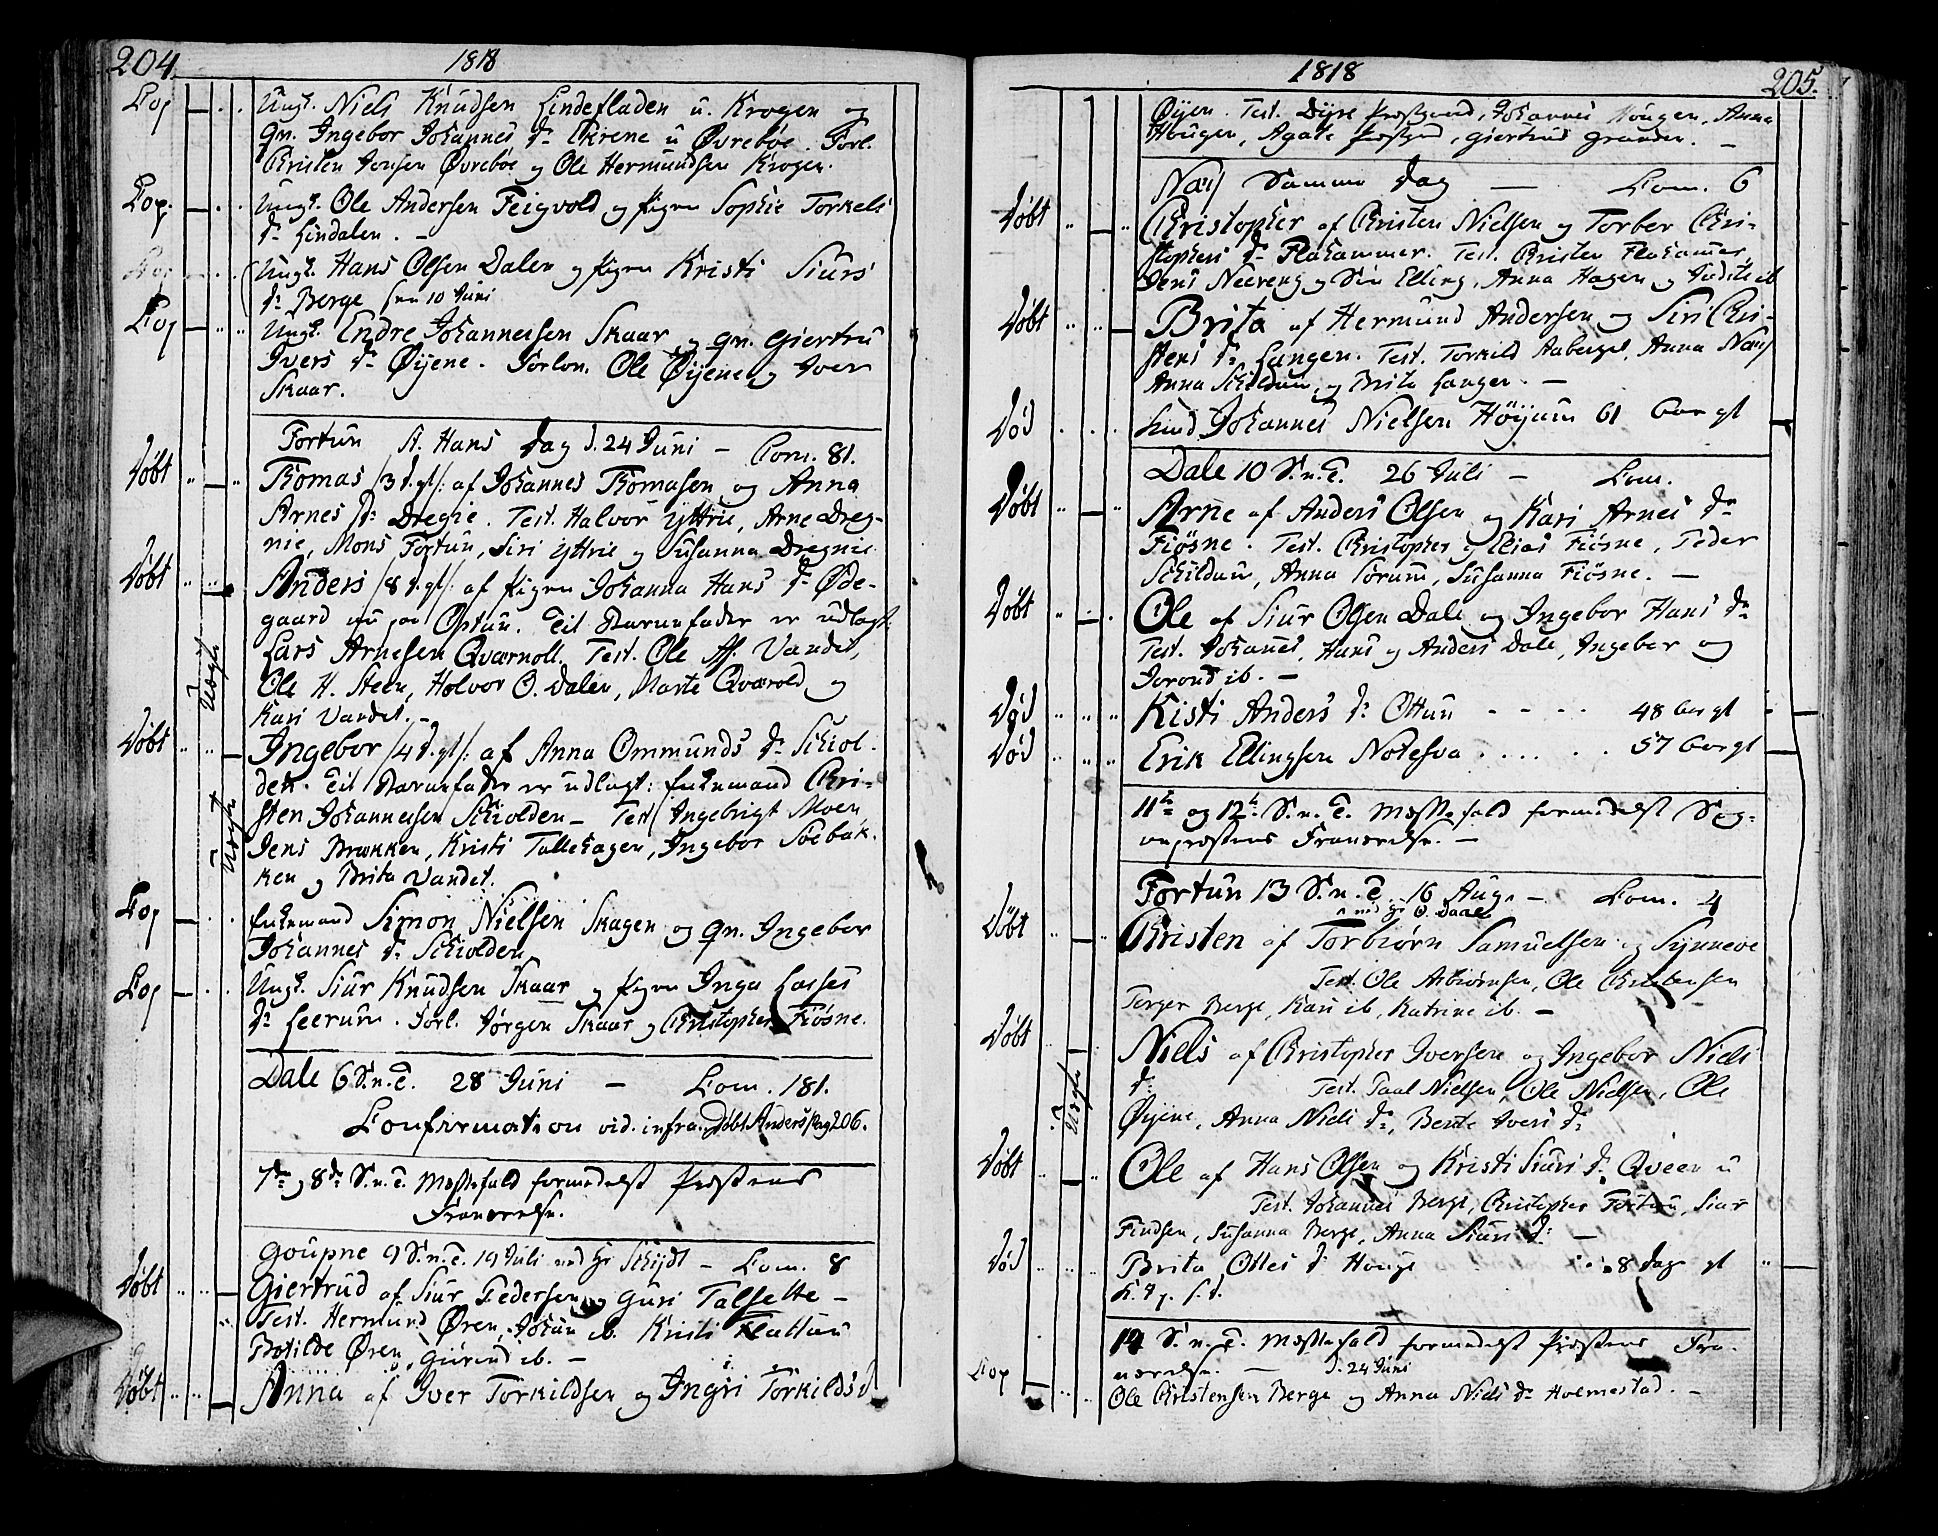 204. 1818
Cop Ungk. Niels Knudsen Lindefladen u. Krogen og
qv. Ingebor Johannes Dr. Ekrene u Øvrebøe. Forl.
Christen Jensen Øvrebøe og Ole Hermundsen Krogen.
Cop. Ungk. Ole Andersen Feigvold og Pigen Sophie Torkels
Dr. Lindalen. —
Cop Ungk. Hans Olsen Dalen og Pigen Kristi Siurs
Dr. Berge den 10 Juni
Cop Ungk. Endre Johannessen Skaar og qv. Giertru
Ivers Dr. Øijene. Forlov. Ole Øijene og Iver
Skaar.
Fortun St. Hans Dag d. 24 Juni — Com. 81.
Døbt Thomas /3 d. gl/: af Johannes Thomasen og Anna
Arnes Dr. Dregie. Test. Halvor Yttrie, Arne Dreg-
nie, Mons Fortun, Siri Yttrie og Susanna Dregnie
Døbt Anders /8 d. gl/: af Pigen Johanna Hans Dr. Øde-
gaard nu paa Optun. Til Barnefader er udlagt:
Lars Arnesen Qværnoll. Test. Ole Vandet,
Ole H. Steen, Halvor O. Dalen, Marte Qværold og
Kari Vandet. —
Uægte
Døbt Ingebor /4 d. gl/: af Anna Ommunds Dr. Schiol-
den. Til Barnefader er udlagt: Enkemand Chri-
sten Johannessen Schiolden — Test Ingebrigt Moen
Jens Brækken, Kristi Tallehagen, Ingebor Søebak-
ken og Brita Vandet.
Uægte
Cop Enkemand Simon Nielsen Skagen og qv. Ingebor
Johannes Dr. Schiolden
Cop Ungk. Siur Knudsen Skaar og Pigen Inga Lasses
Dr. Leerum. Forl. Jørgen Skaar og Christopher Fiøsne.
Dale 6 S. n. T. 28 Juni — Com. 181.
Confirmation vid. infra. Døbt Anders pag 206.
7de og 8de S. n. T. Messefald formedelst Præstens
Fraværelse.
Goupne 9 S. n. T. 19 Juli ved Hr Schijdt — Com. 8
Døbt Giertrud af Siur Pedersen og Guri Talsette —
Test. Hermund Øren, Johan ib. Kristi Flattun
Botilde Øren, Giørund ib. —
Døbt Anna af Iver Torkildsen og Ingri Torkilds d
1818 205.
Øijen. Test. Dyre Prestegrd, Johannes Hougen, Anna
Hougen, Agate Prestegrd, Giertrud Granden. —
Næs Samme Dag — Com. 6
Døbt Christopher af Christen Nielsen og Torber Chri-
stophers Dr. Flahammer. Test. Christen Flahammer,
Jens Neereng og Siu Elling, Anna Hagen og Judite ib
Døbt Brita af Hermund Andersen og Siri Chri-
stens Dr. Langen. Test. Torkild Aaberge, Anna Næs
Anna Schildum, og Brita Langen. —
Død Lind Johannes Nielsen Høijum 61 Aar gl
Dale 10 S. n. T. 26 Juli — Com.
Døbt Arne af Anders Olsen og Kari Arnes Dr
Fiøsne. Test. Christopher og Elias Fiøsne, Peder
Schildum, Anna Sorum, Susanna Fiøsne. —
Døbt Ole af Siur Olsen Dale og Ingebor Hans Dr
Test. Johannes, Hans og Anders Dale, Ingebor og
Jorond ib. —
Død Kisti Anders Dr. Ottun - - - - 48 Aar gl
Død Erik Ellingsen Notesva . . . . . 57 Aar gl
11te og 12te S. n. T. Messefald formedelst Sog-
nepræstens Fraværelse. —
Fortun 13 S. n. T. 16 Aug. — Com. 4
ved Hr O. Daae
Døbt Christen af Torbiørn Samuelsen og Synneve
Test. Ole Asbiørnsen, Ole Christensen
Torger Berge, Kari ib, Katrine ib. —
Døbt Niels af Christopher Iversen og Ingebor Niels
Dr. Test. Paal Nielsen, Ole Nielsen, Ole
Øijene, Anna Niels Dr., Bente Ivers Dr
Uægte
Døbt Ole af Hans Olsen og Kristi Siurs Dr. Qveen u
Test. Johannes Berge, Christopher Fortun, Siur
Findsen, Susanna Berge, Anna Siurs Dr. —
Død Brita Ottes Dr Houge . . . 8 Dage gl
14 S. n. T. Messefald formedelst Præstens Fra-
værelse. — d. 24 Juni
Cop Ole Christensen Berge og Anna Niels Dr Holmestad. —